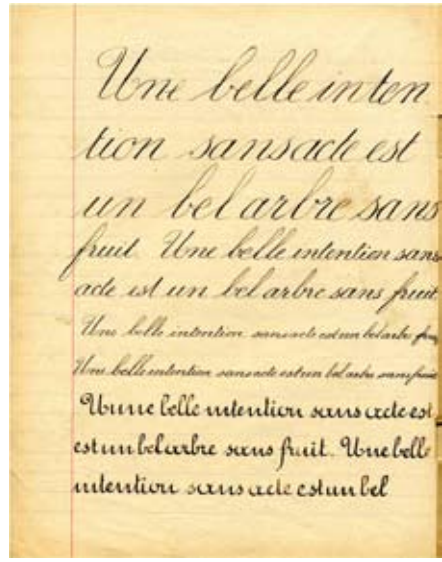 Une belle inten
tion sans acte est
un bel arbre sans
fruit. Une belle intention sans
acte est un bel arbre sans fruit
Une belle intention sans acte est un bel arbre fruit
Une belle intention sans acte est un bel arbre sans fruit
Unne belle intention sans acte est
est un bel arbre sans fruit. Une belle
intention sans acte est un bel